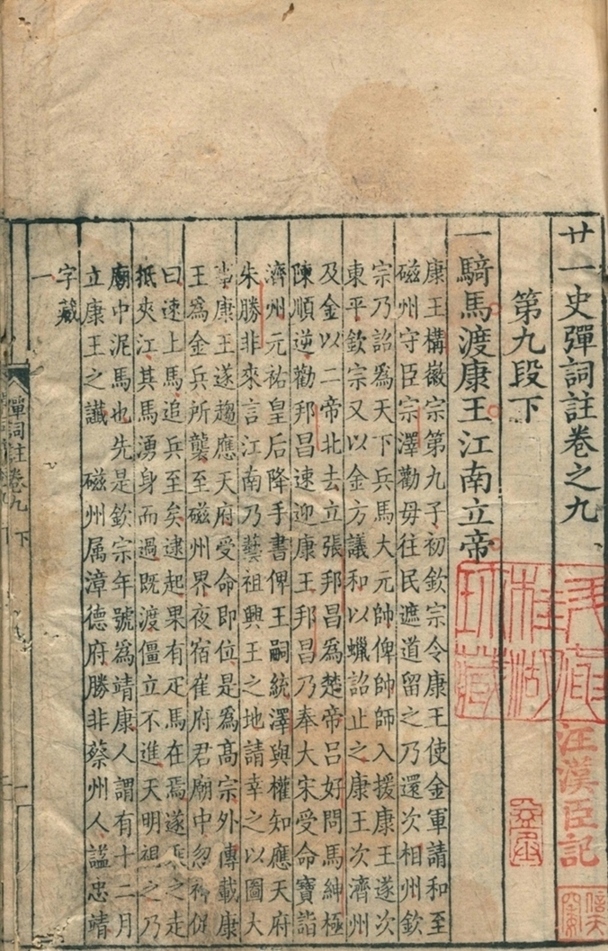 廿一史彈詞註卷之九
第九段下
一騎馬渡康王江南立帝
康王構徽宗第九子初欽宗令康王使金軍請和至
磁州守臣宗澤勸毋往民遮道留之乃還次相州欽
宗乃詔為天下兵馬大元帥俾帥師入援康王遂次
東平欽宗又以金方議和以蠟詔止之康王次濟州
及金以二帝北去立張邦昌為楚帝呂好問馬紳極
陳順逆勸邦昌速迎康王邦昌乃奉大宋受命寶詣
濟州元祐皇后降手書俾王嗣統澤與權知應天府
朱勝非來言江南乃藝祖興王之地請幸之以圖大
事康王遂趨應天府受命即位是為高宗外傳載康
王為金兵所襲至磁州界夜宿崔府君廟中忽神促
曰速上馬追兵至矣逮起果有疋馬在焉遂乘之走
抵夾江其馬湧身而過既渡僵立不進天明視之乃
廟中泥馬也先是欽宗年號為靖康人謂有十二月
立康王之讖　磁州属漳德府勝非蔡州人謚忠靖
字藏
一
彈詞註卷九　下
一
汪漢臣記